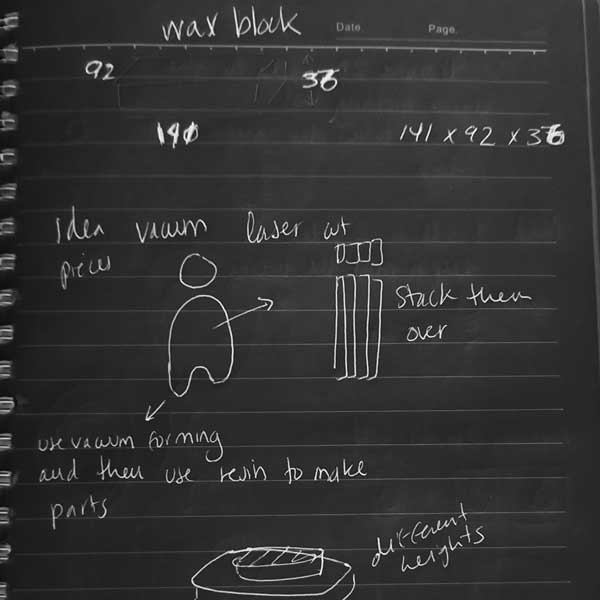 wax block
Date.
Page.
92
36
141 x 92 x 36
Idea vacuum laser cut
pieces
Stack them
over
use vacuum forming
and then use resin to make
parts
different
heights